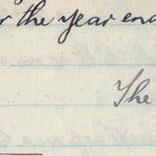 the year end
The